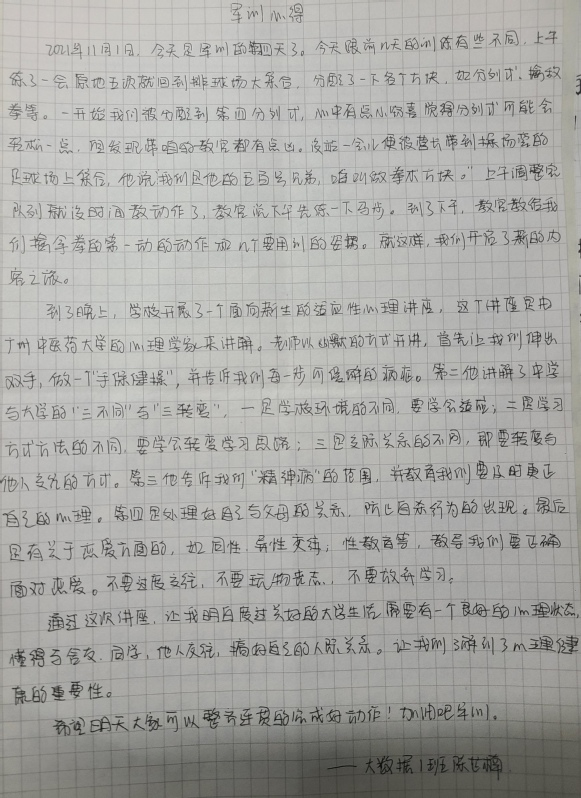 军训心得
2021年11月1日，今天是军训的第四天了。今天跟前几天的训练有些不同，上午
练了一会原地五次就回到排球场大集合，分配了一下各个方块，如分列式、擒敌
拳等。一开始我们被分配到第四分列式，心中有点小惊喜觉得分列式可能会
轻松一点，但发现带咱的教官都有点凶。后站一会儿便被营长带到操场旁的
足球场上集合，他说我们是他的五百号兄弟，咱叫做拳术方块。"上午调整完
队列就没时间教动作了，教官说下午先练一下马步。到了下午，教官教给我
们擒拿拳的第一动的动作和几个要用到的姿势。就这样，我们开启了新的内
容之旅。
到了晚上，学校开展了一个面向新生的适应性心理讲座，这个讲座是由
广州中医药大学的心理学家来讲解。老师以幽默的方式开讲，首先让我们伸出
双手，做一个"手保健操"，并告诉我们每一步可缓解的病症。第二他讲解了中学
与大学的"三不同"与"三转变"，一是学校环境的不同，要学会适应；二是学习
方式方法的不同，要学会转变学习思路；三是交际关系的不同，那要转变与
他人交往的方式。第三他告诉我们"精神病"的范围，并教育我们要及时更正
自己的心理。第四是处理好自己与父母的关系，防止自杀行为的出现。最后
是有关于恋爱方面的，如同性、异性交往，性教育等，教导我们要正确
面对恋爱。不要过度交往，不要玩物丧志，不要放弃学习。
通过这次讲座，让我明白度过美好的大学生活需要有一个良好的心理状态，
懂得与舍友、同学、他人交往，搞好自己的人际关系。让我们了解到了心理健
康的重要性。
希望明天大家可以整齐连贯的完成好动作！加油吧军训。
——大数据1班陈